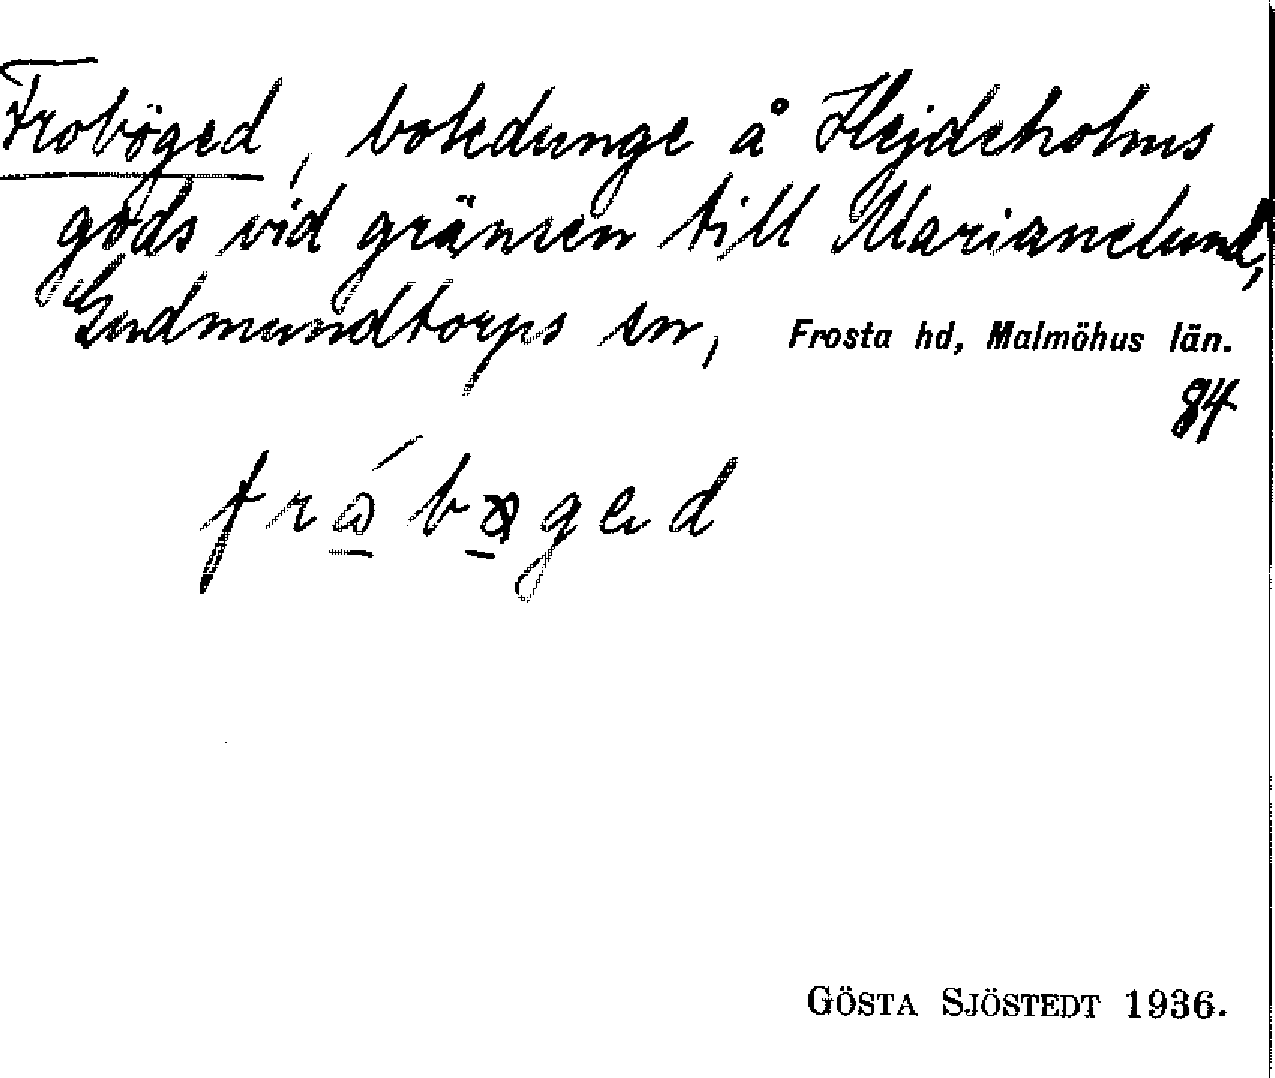 Froböged, bokdunge å Hejdeholms
gods vid gränsen till Marianelund,
Gudmundtorps sn, Frosta hd, Malmöhus län.
84
GÖSTA SJÖSTEDT 1936.